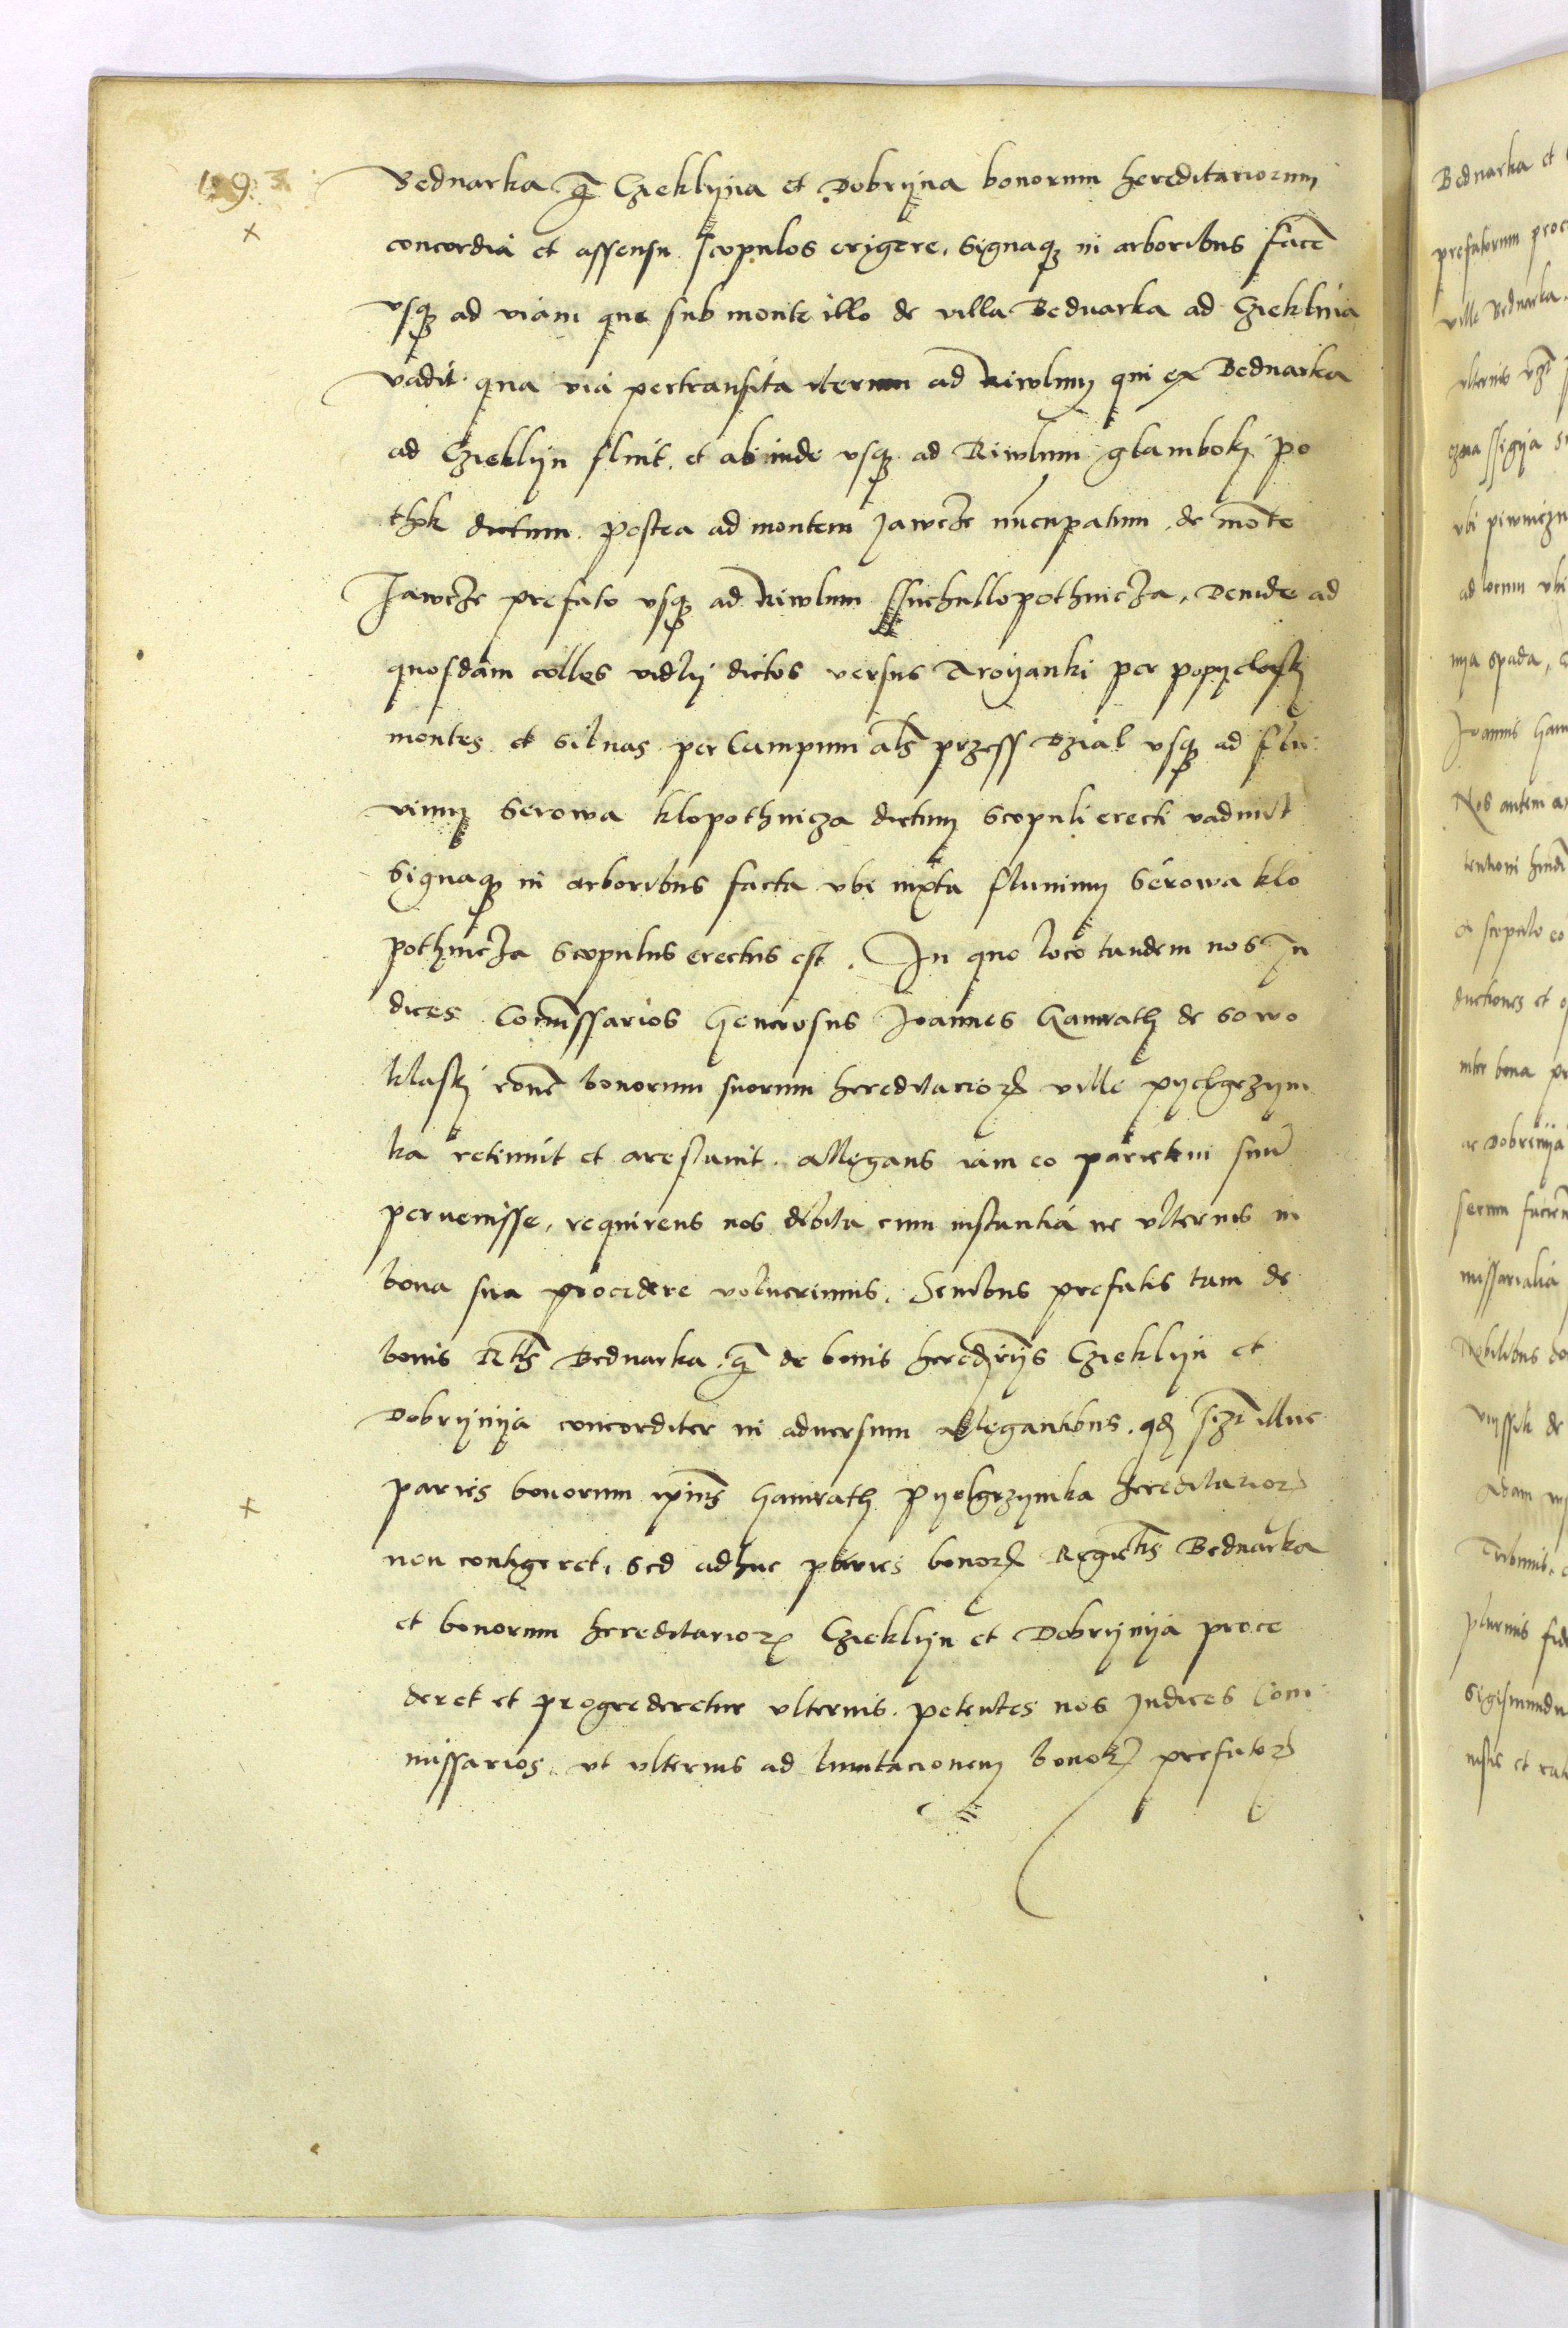 Bednarka q̃ Czieklyna et Dobryna bonorum hereditariorum
concordia et assensu scopulos erigere, signaq3 in arboribus facẽ
vsq3 ad viam que sub monte illo de villa Bednarka ad Czieklina
vadit qua via pertransita iterum ad Riwlum qui ex Bednarka
ad Czieklyn fluit, et ab inde vsq3 ad Riwlum glamboky po
thok dictum. postea ad montem Jawcze nũcupatum, de mõte
Jawcze prefato vsq3 ad Riwlum Suchullopothnicza, Deinde ad
quosdam colles vidly dictos versus Troyanki per popyelasky
montes et siluas per Campum als̃ przess Dzial vsq3 ad flu
uium Serowa klopothnicza dictum scopuli erecti vadunt
signaq3 in arboribus facta vbi iuxta fluuium Serowa klo
pothnicza scopulus erectus est. In quo loco tandem nos Ju
dices Com̃issarios Generosus Joannes Gamrath de sowo
klasky rõne bonorum suorum hereditarioꝝ ville pyelgrzym
ka retinuit et arestauit. allegans iam eo parietem suũ
peruenisse, requirens nos debita cum instantia ne vlterius in
bona sua procedere voluerimus. Senioribus prefatis tam de
bonis Rthš Bednarka, q̃ de bonis heredr̃ijs Czieklyn et
Dobrynya concorditer in aduersum allegantibus. qd illuc
paries bonorum ipius̃ Gamrath Pyelgrzymka hereditarioꝝ
non contigeret, sed adhuc paries bonoꝝ Regiẽtis Bednarka
et bonorum hereditarioꝝ Czieklyn et Dobrynya proce
deret et progrederetur vlterius. petentes nos Judices Com
missarios, vt vlterius ad limitacionem bonoꝝ prefatoꝝ
Bednarka et
prefatorum
ville Bednarka
vlterius
vbi
ad locum vbi
nya spada,
Joannes Gam
Nos autem
a scopulo eo
ductiones et
inter bona
ac Dobrinya
missarialia
Nobilibus
Adam
Sigismundu